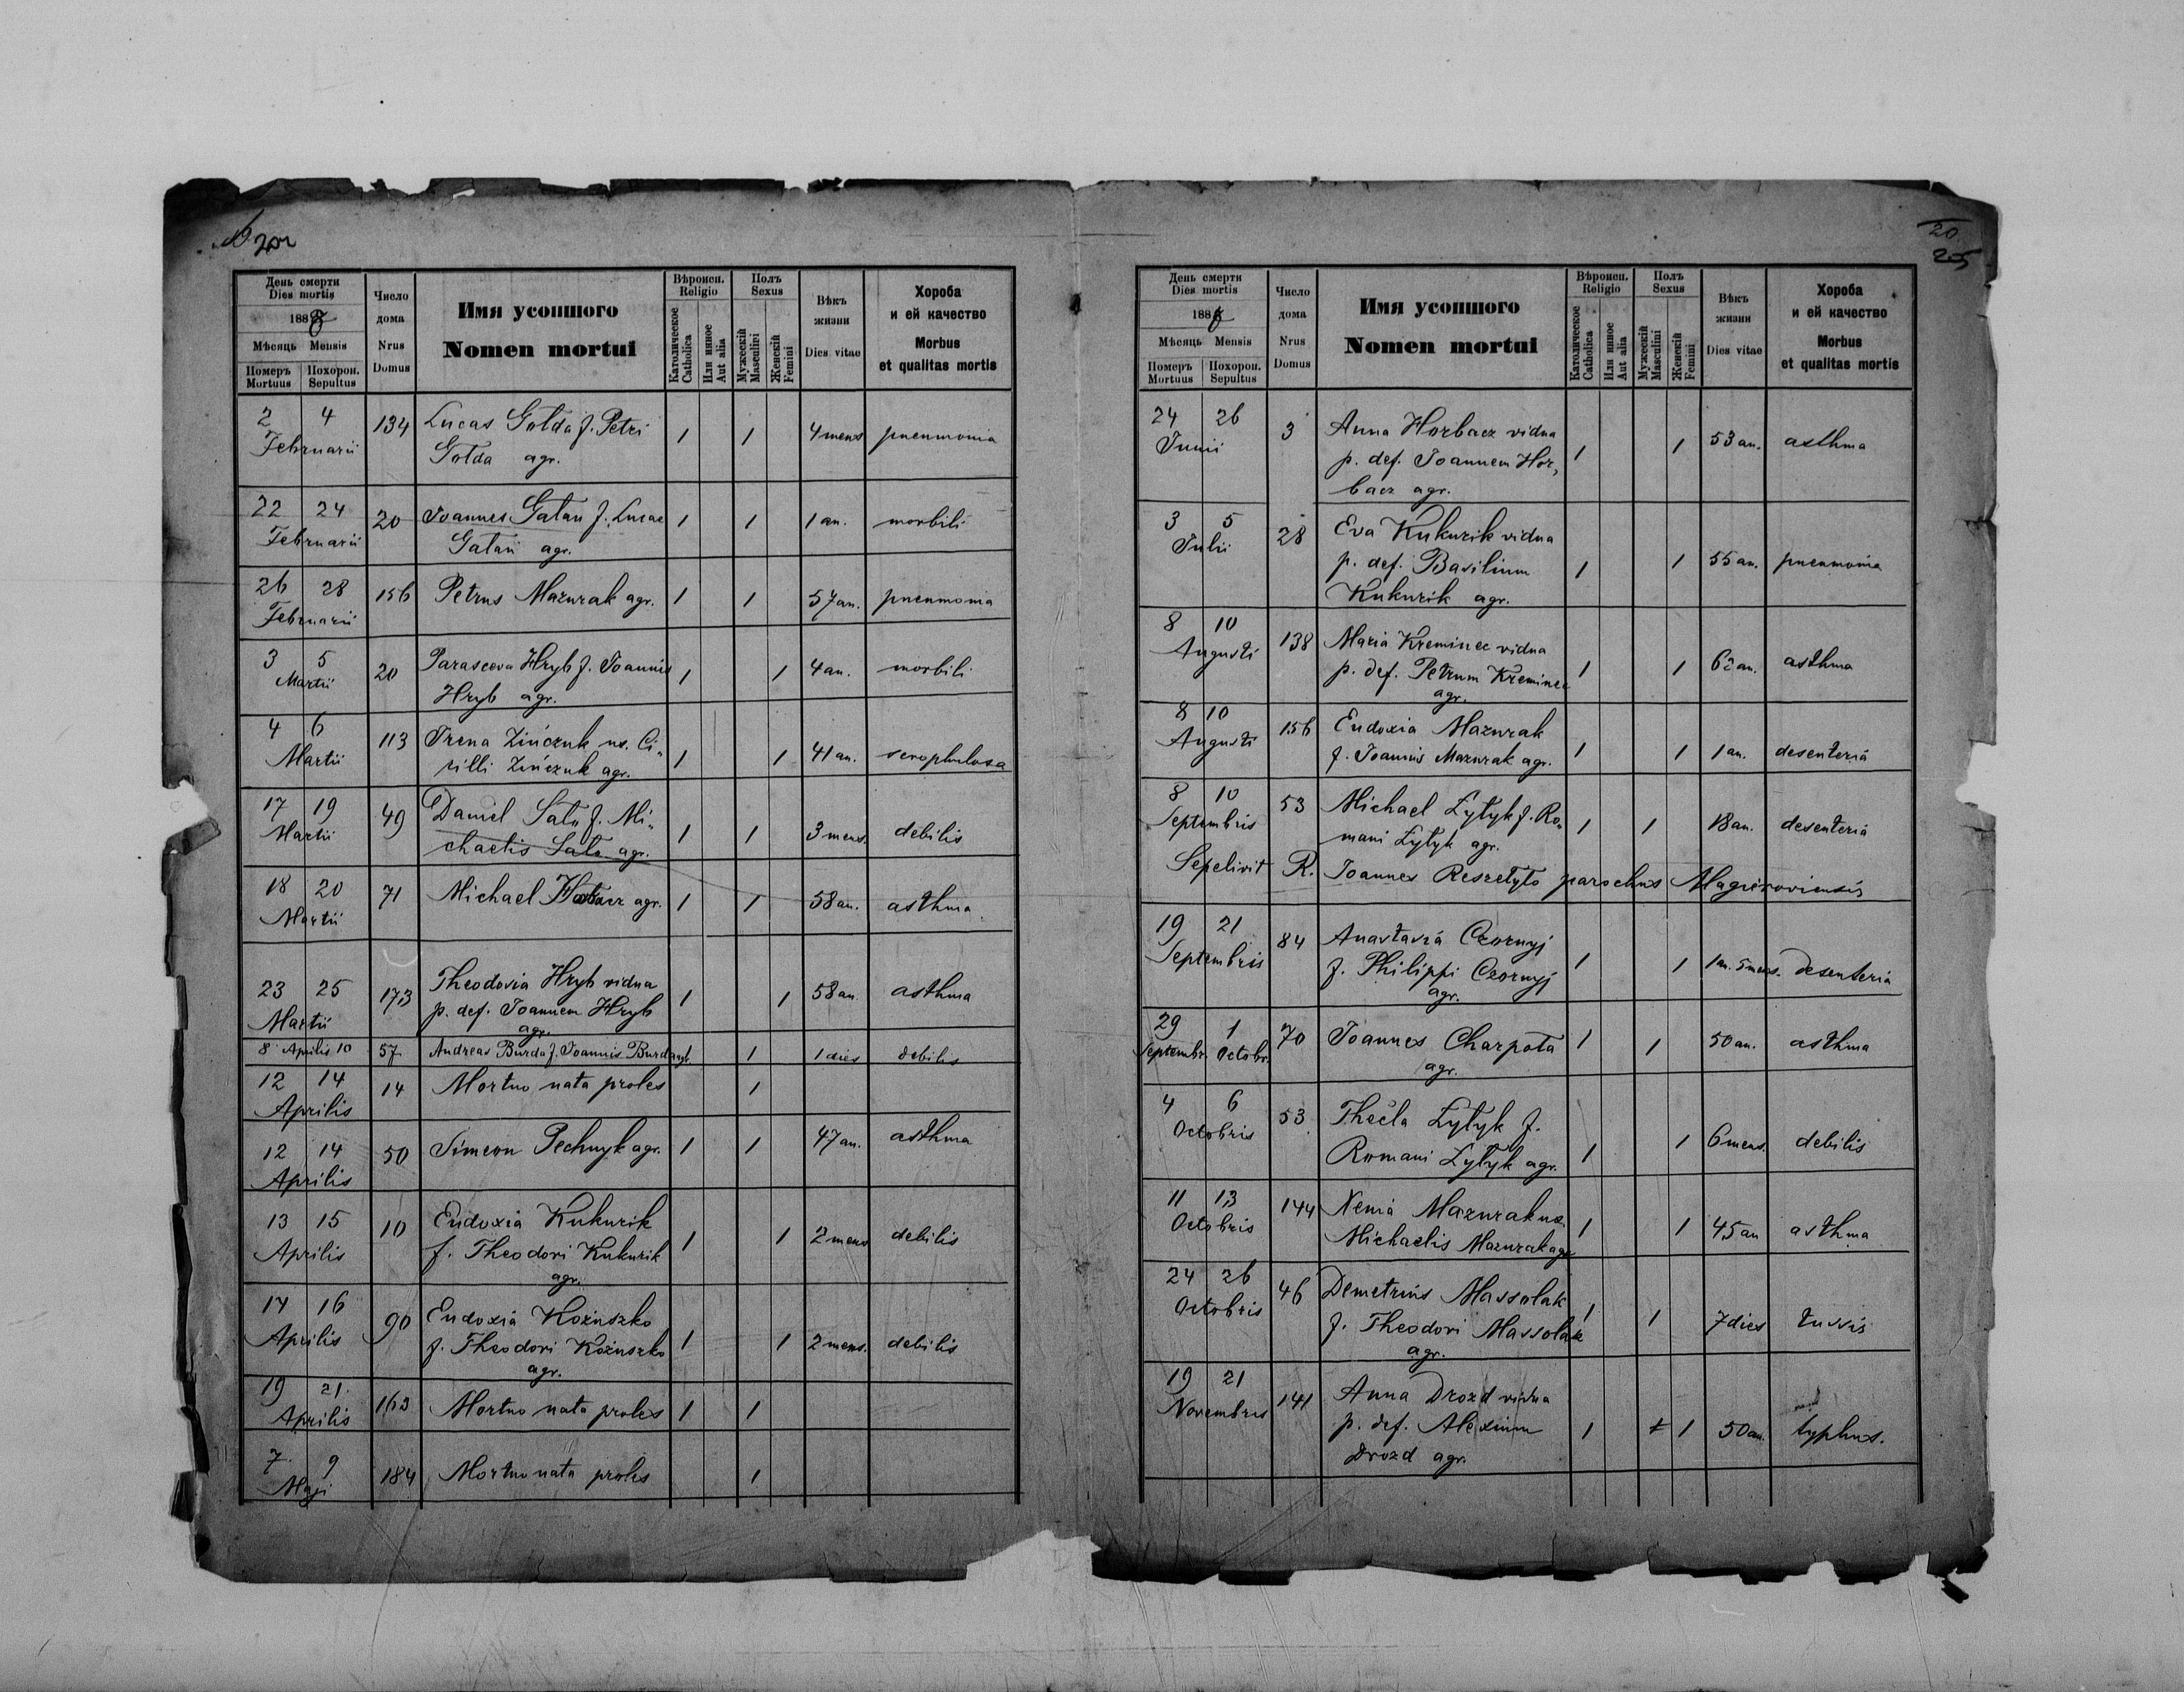 20
205
День смерти
Dies mortis
188
Мѣсяць Mensis
Померъ Mortuus
Похорон. Sepultus
Число дома
Nrus Domus
Имя усопшого
Nomen mortui
Вѣроисп.
Religio
Католическое Catholica
Или инное Aut alia
Полъ
Sexus
Мужескій Masculini
Женскій Femini
Вѣкъ жизни
Dies vitae
Хороба
и ей качество
Morbus
et qualitas mortis
2 4 134 Lucas Gołda f. Petri 1 1 4 mens pneumonia
Februarii Gołda agr.
22 24 20 Joannes Gatań f. Lucae 1 1 1 an. morbili
Februarii Gatań agr.
26 28 156 Petrus Mazurak agr. 1 1 57 an. pneumonia
Februarii
3 5 20 Parasceva Hryb f. Joannis 1 1 4 an. morbili
Martii Hryb agr.
4 6 113 Irena Zińczuk ux. Ci- 1 1 41 an. scrophulosa
Martii rilli Zińczuk agr.
17 19 49 Daniel Sało f. Mi- 1 1 3 mens. debilis
Martii chaelis Sało agr.
18 20 71 Michael agr. 1 1 58 an. asthma
Martii
23 25 173 Theodosia Hryb vidua 1 1 58 an. asthma
Martii p. def. Joannem Hryb
agr.
8 Aprilis 10 57 Andreas Burda f. Joannis Burda agr. 1 1 dies debilis
12 14 14 Mortuo nata proles 1
Aprilis
12 14 50 Simeon Pechnyk agr. 1 1 47 an. asthma
Aprilis
13 15 10 Eudoxia Kukurik 1 1 2 mens debilis
Aprilis f. Theodori Kukurik
agr.
14 16 90 Eudoxia Kożuszko 1 1 2 mens. debilis
Aprilis f. Theodori Kożuszko
agr.
19 21 163 Mortuo nata proles 1 1
Aprilis
7 9 184 Mortuo nata proles 1
Maji
День смерти
Dies mortis
188
Мѣсяць Mensis
Померъ Mortuus
Похорон. Sepultus
Число дома
Nrus Domus
Имя усопшого
Nomen mortui
Вѣроисп.
Religio
Католическое Catholica
Или инное Aut alia
Полъ
Sexus
Мужескій Masculini
Женскій Femini
Вѣкъ жизни
Dies vitae
Хороба
и ей качество
Morbus
et qualitas mortis
24 26 3 Anna Horbacz vidua 1 1 53 an. asthma
Junii p. def. Joannem Hor-
bacz agr.
3 5 28 Eva Kukurik vidua
Julii p. def. Basilium 1 1 55 an. pneumonia
Kukurik agr.
8 10 138 Maria Kreminec vidua
Augusti p. def. Petrum Kreminec 1 1 62 an. asthma
agr.
8 10 156 Eudoxia Mazurak
Augusti f. Joannis Mazurak agr. 1 1 1 an. desenteria
8 10 53 Michael Zytyk f. Ro- 1 1 18 an. desenteria
Septembris mani Zytyk agr.
Sepelivit R. Joannes Reszetyło parochus Magieroviensis
19 21 84 Anastasia Czornyj
Septembris f. Philippi Czornyj 1 1 1 an. 5 mens. desenteria
agr.
29 1 70 Joannes Charpota 1 1 50 an. asthma
Septembr. Octobr. agr.
4 6 53 Thecla Zytyk f.
Octobris Romani Zytyk agr. 1 1 6 mens. debilis
11 13 144 Xenia Mazurak ux.
Octobris Michaelis Mazurak agr. 1 1 45 an asthma
24 26 46 Demetrius Massolak
Octobris f. Theodori Massolak 1 1 7 dies tussis
agr.
19 21 141 Anna Drozd vidua
Novembris p. def. Alexium 1 1 50 an. typhus.
Drozd agr.